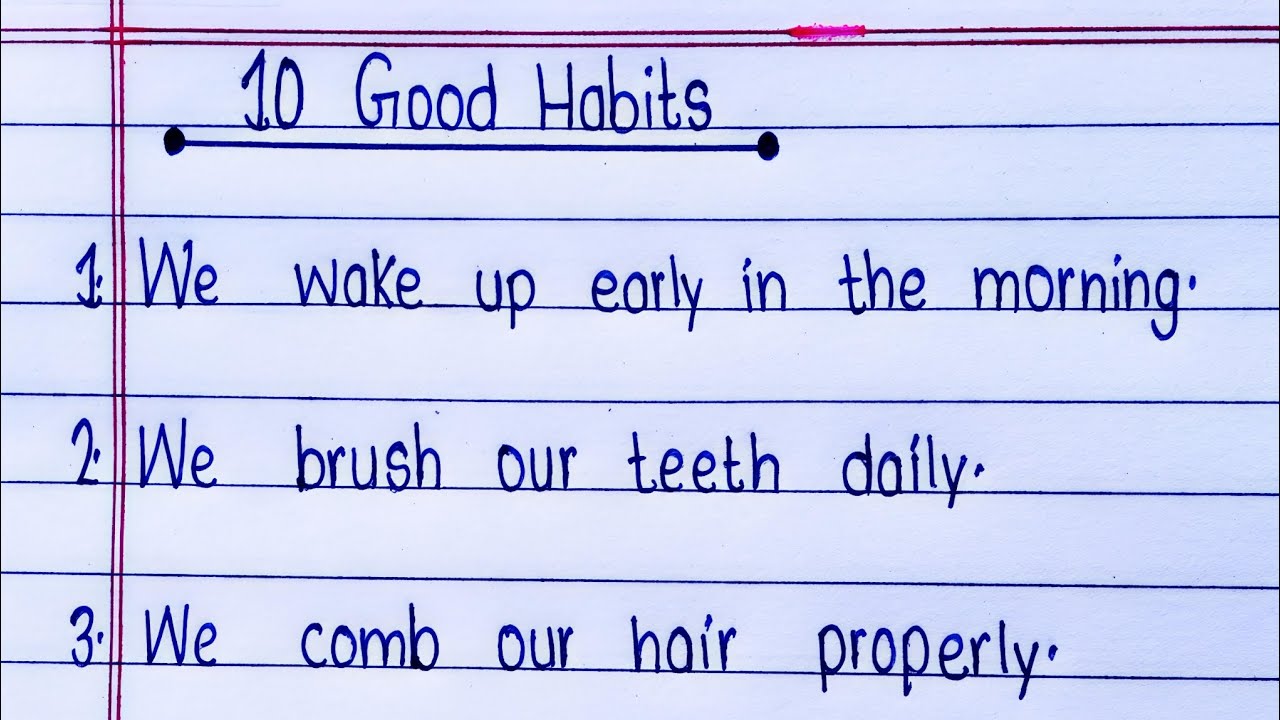 10 Good Habits
1. We wake up early in the morning.
2. We brush our teeth daily.
3. We comb our hair properly.